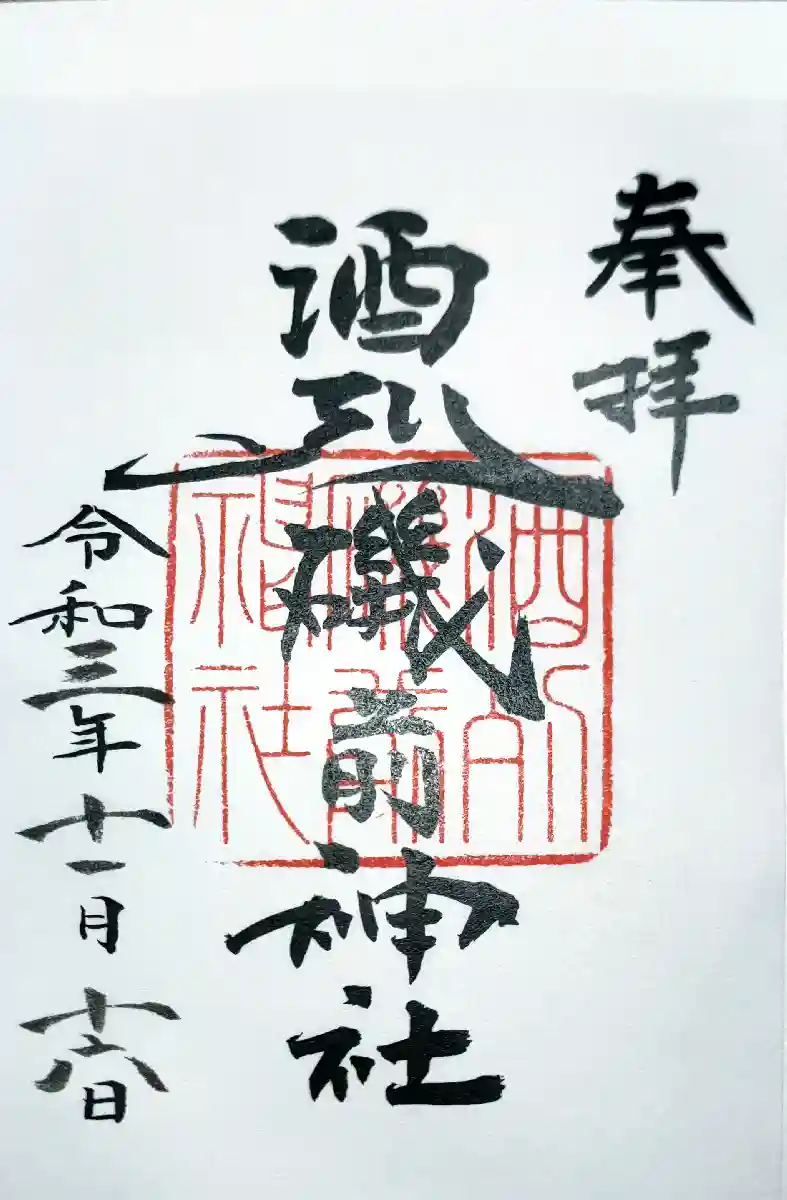 奉拝
酒列磯前神社
酒列磯前神社
令和三年十一月十六日